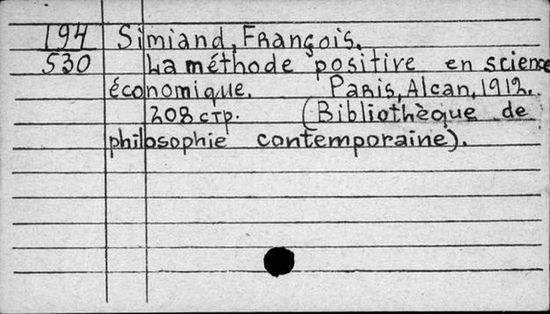 194 Simiand, François.
530 La méthode positive en science
économique. Paris, Alcan, 1912.
208 стр. (Bibliothèque de
philosophie contemporaine).